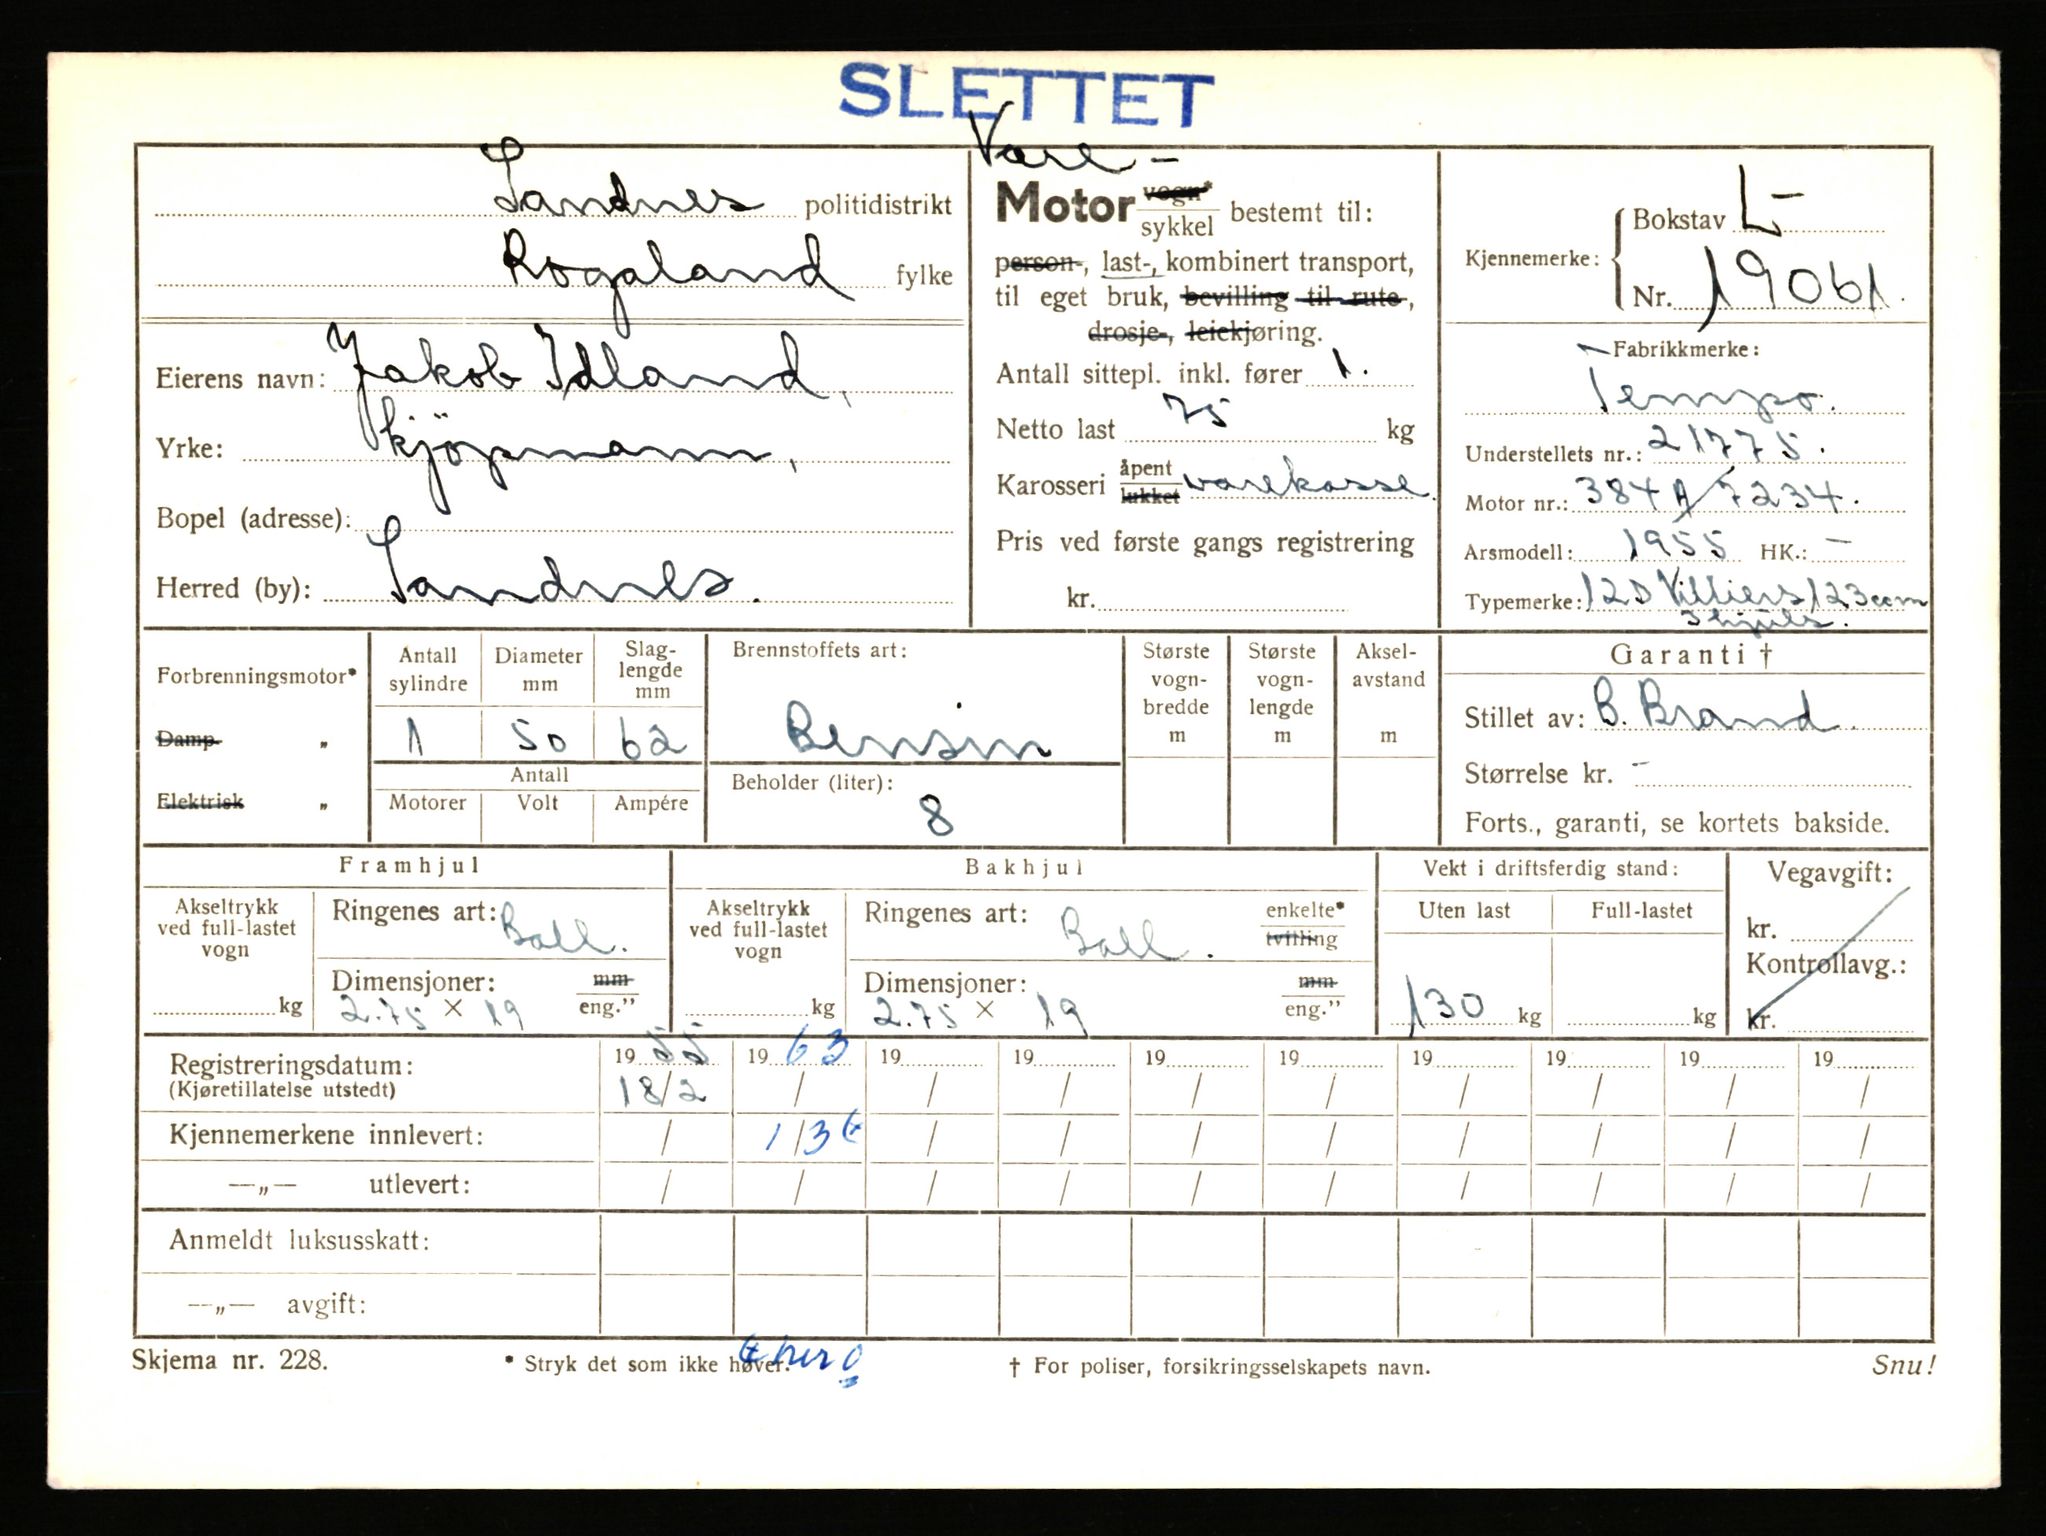 SLETTET
Sandnes politidistrikt
Rogaland fylke
Eierens navn: Jakob Idland,
Yrke: kjöpmann,
Bopel (adresse):
Herred (by): Sandnes.
Vare-
Motor vogn* sykkel bestemt til:
person-, last-, kombinert transport,
til eget bruk, bevilling til rute,
drosje-, leiekjøring.
Antall sittepl. inkl. fører 1.
Netto last 75 kg
Karosseri åpent lukket varekasse.
Pris ved første gangs registrering
kr.
Kjennemerke: Bokstav L-
Nr. 19061.
Fabrikkmerke:
Tempo.
Understellets nr.: 21775.
Motor nr.: 384A/7234.
Arsmodell: 1955 HK.: -
Typemerke: 12D Villiers 123ccm
3 hjuls.
Forbrenningsmotor*
Damp „
Elektrisk „
Antall sylindre Diameter mm Slag-lengde mm
1 50 62
Antall
Motorer Volt Ampére
Brennstoffets art:
Bensin
Beholder (liter):
8
Største vogn-bredde m
Største vogn-lengde m
Aksel-avstand m
Garanti †
Stillet av: B. Brand.
Størrelse kr. -
Forts., garanti, se kortets bakside.
Framhjul
Akseltrykk ved full-lastet vogn
kg
Ringenes art: Ball.
Dimensjoner: mm
2.75 × 19 eng.”
Bakhjul
Akseltrykk ved full-lastet vogn
kg
Ringenes art: Ball. enkelte* tvilling
Dimensjoner: mm
2.75 × 19 eng.”
Vekt i driftsferdig stand:
Uten last Full-lastet
130 kg kg
Vegavgift:
kr.
Kontrollavg.:
kr.
Registreringsdatum: 19 55 19 63 19 19 19 19 19 19 19 19
(Kjøretillatelse utstedt) 18/2 / / / / / / / / /
Kjennemerkene innlevert: / 1/3 / / / / / / / /
—„— utlevert: / / / / / / / / / /
Anmeldt luksusskatt:
—„— avgift:
Skjema nr. 228.
* Stryk det som ikke høver.
† For poliser, forsikringsselskapets navn.
Snu!